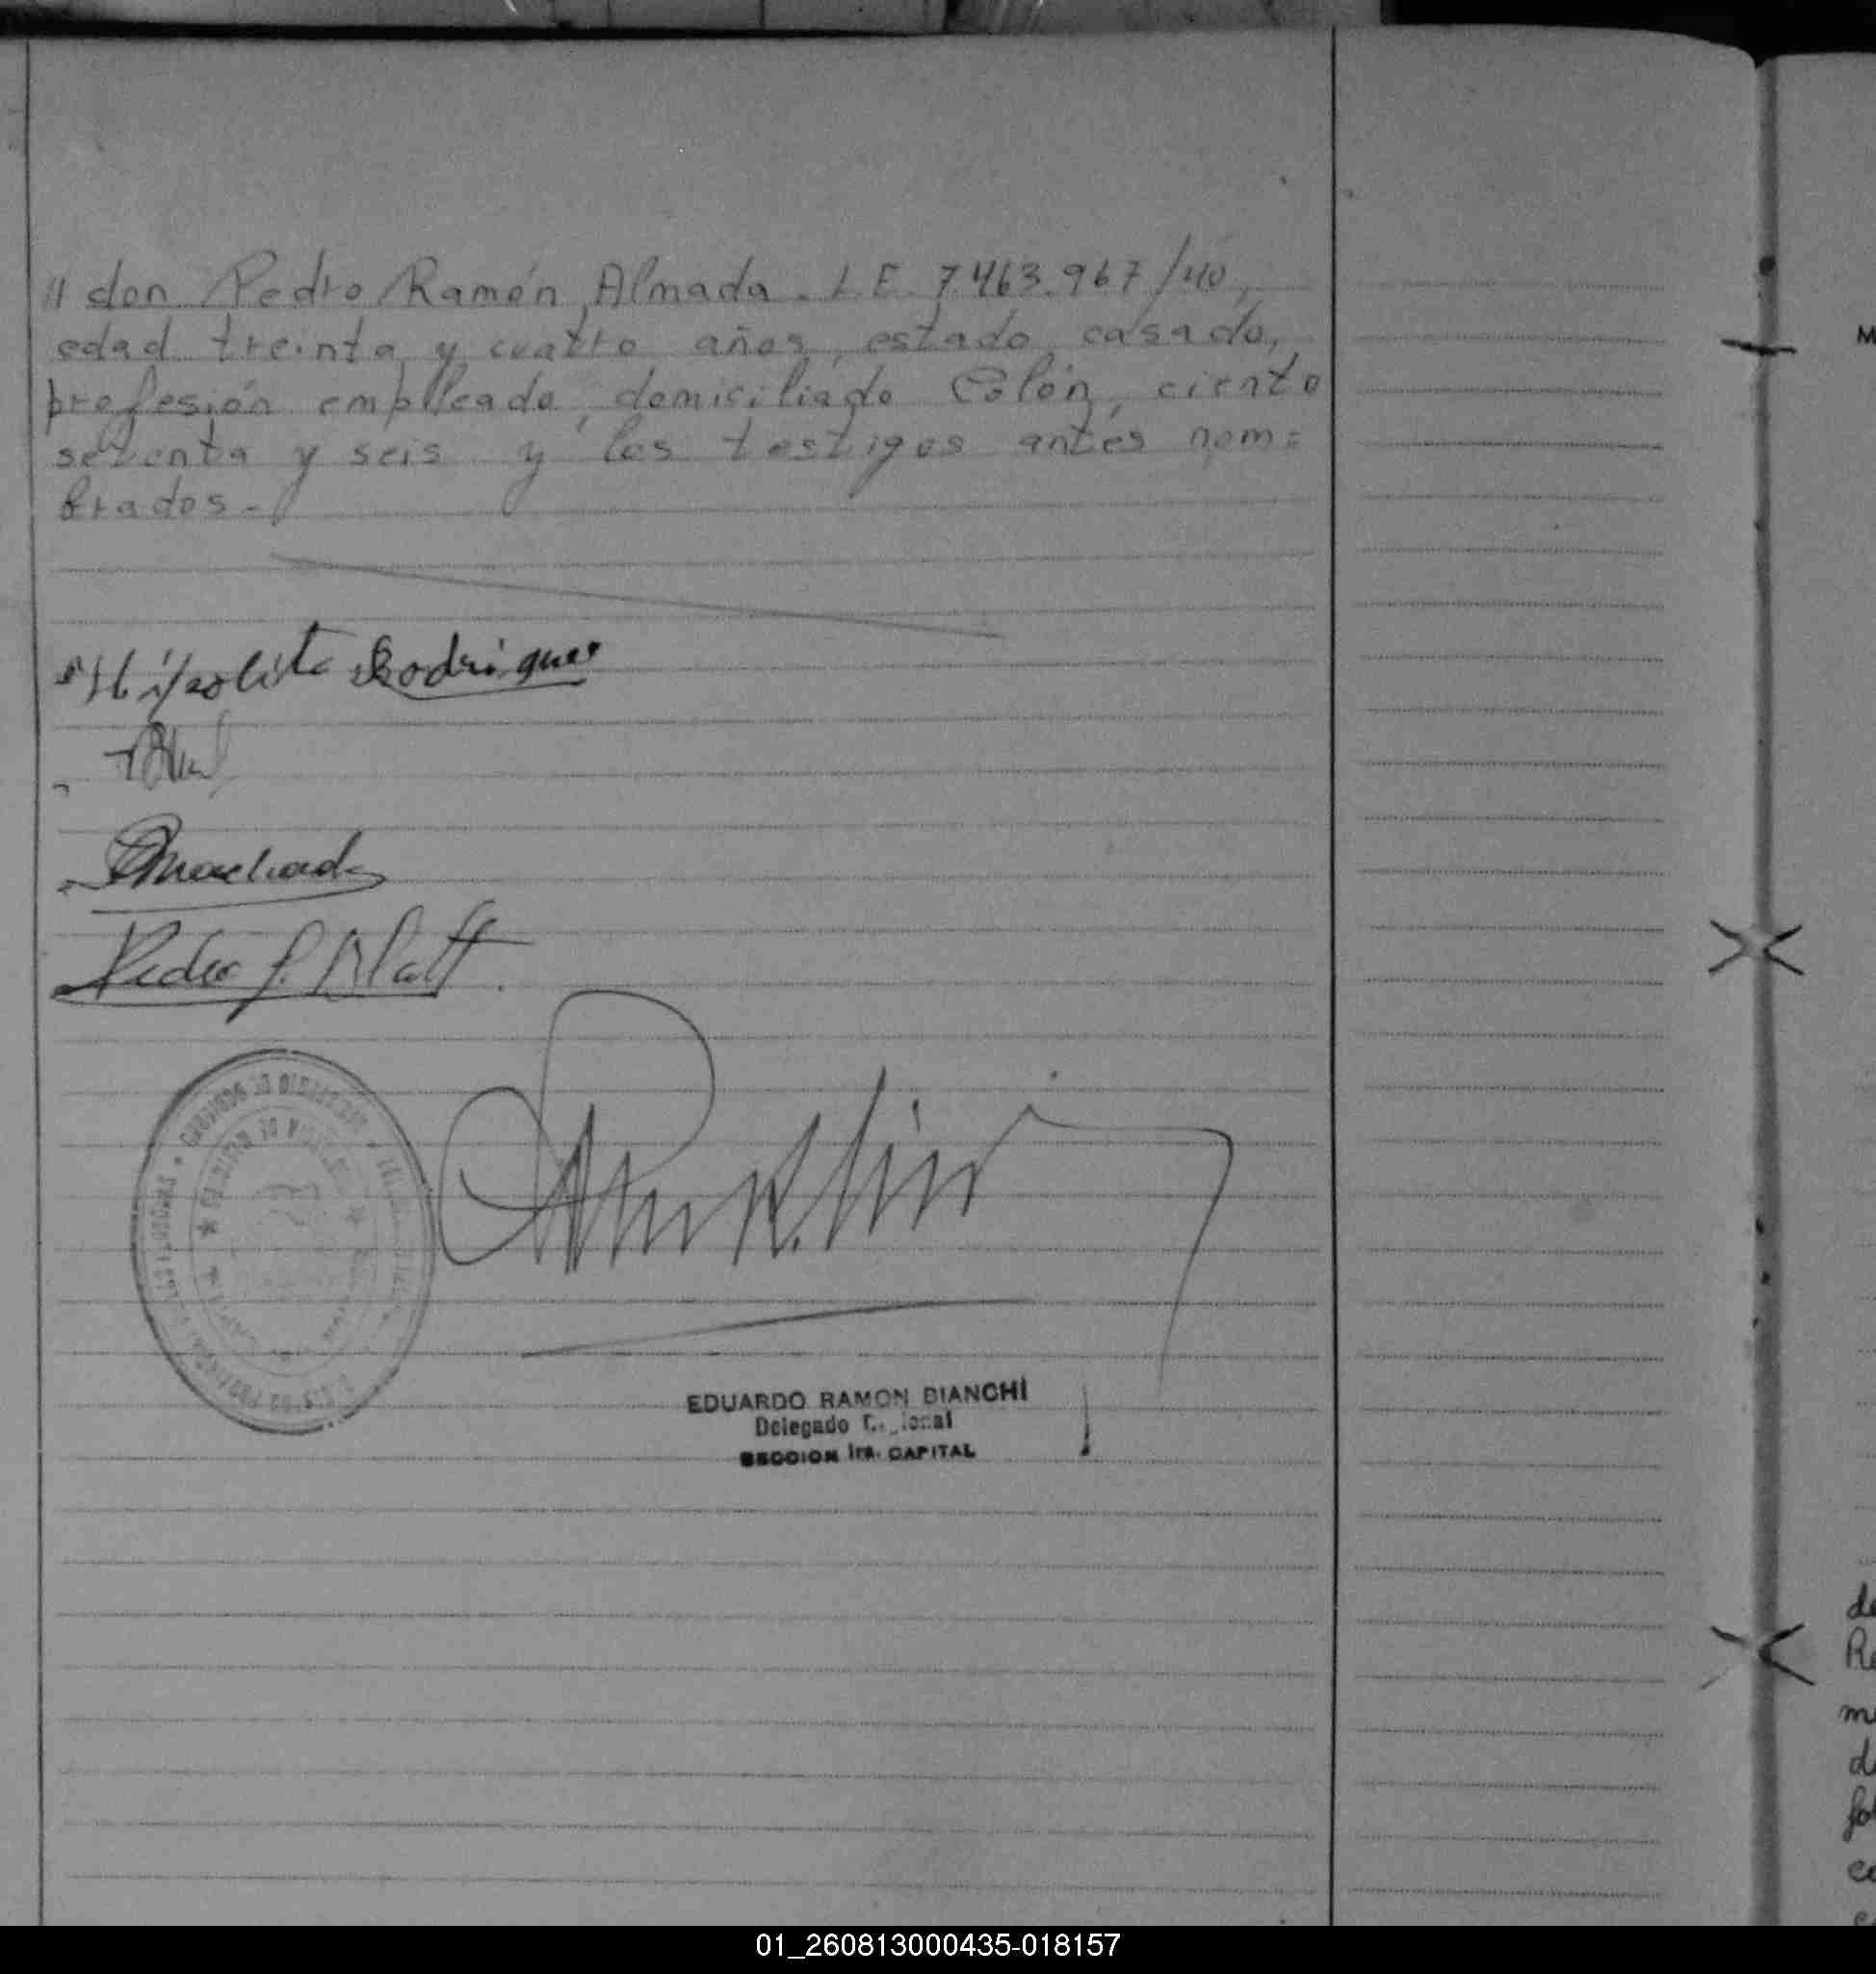 // don Pedro Ramón Almada. L.E. 7.463.967/40,
edad treinta y cuatro años, estado casado,
profesión empleado, domiciliado Colón, ciento
setenta y seis y los testigos antes nom=
brados.-
Hipolito Rodrigues
Machado
Pedro J. Blatt.
EDUARDO RAMON BIANCHI
Delegado
SECCION 1ra. CAPITAL
M
de
Re
01_260813000435-018157